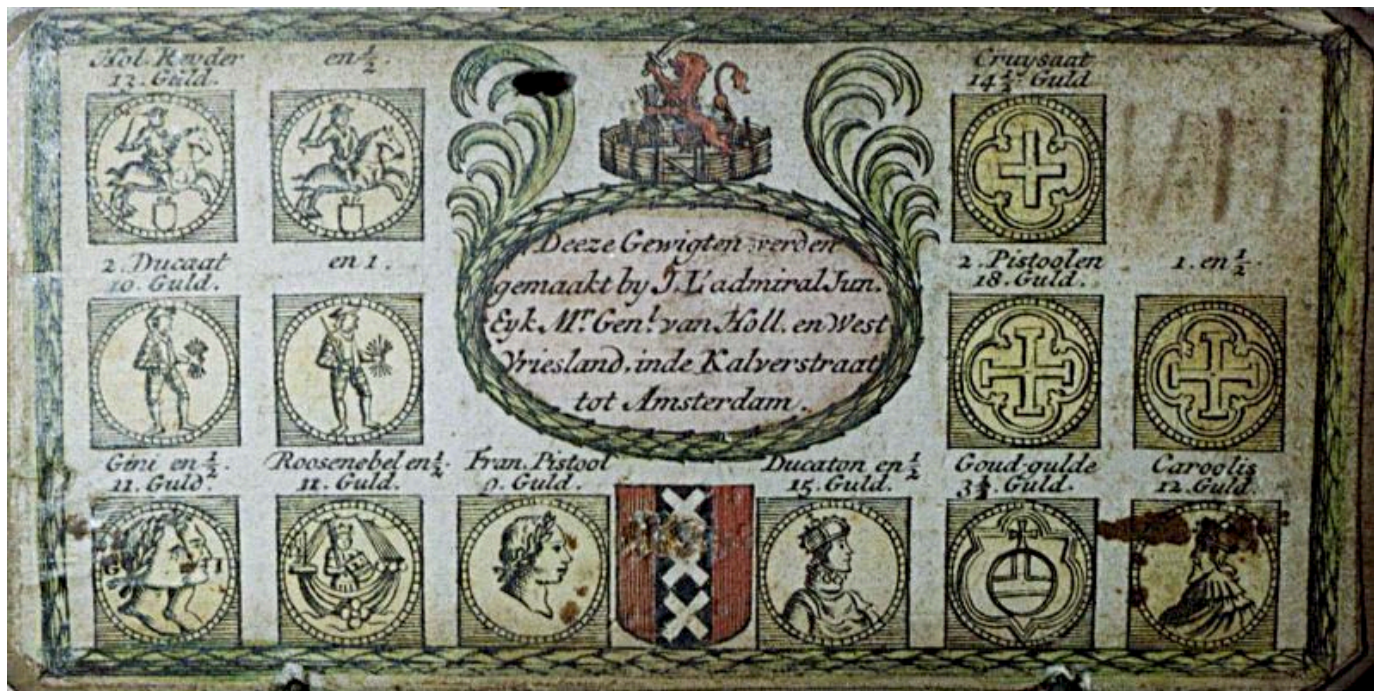 Hol. Reyder
13. Guld.
en ½.
Cruysaat
14 ½. Guld
2. Ducaat
10. Guld.
en 1.
Deeze Gewigten werden
gemaakt by J. L'admiral Jun.
Eyk Mr. Genl. van Holl. en West
Vriesland, inde Kalverstraat
tot Amsterdam.
2. Pistoolen
18. Guld.
1. en ½.
Gini en ½.
11. Guld.
Roosenobel en ½.
11. Guld.
Fran. Pistool
9. Guld.
Ducaton en ½
15. Guld.
Goud-gulde
Guld.
Caroolis
12. Guld.